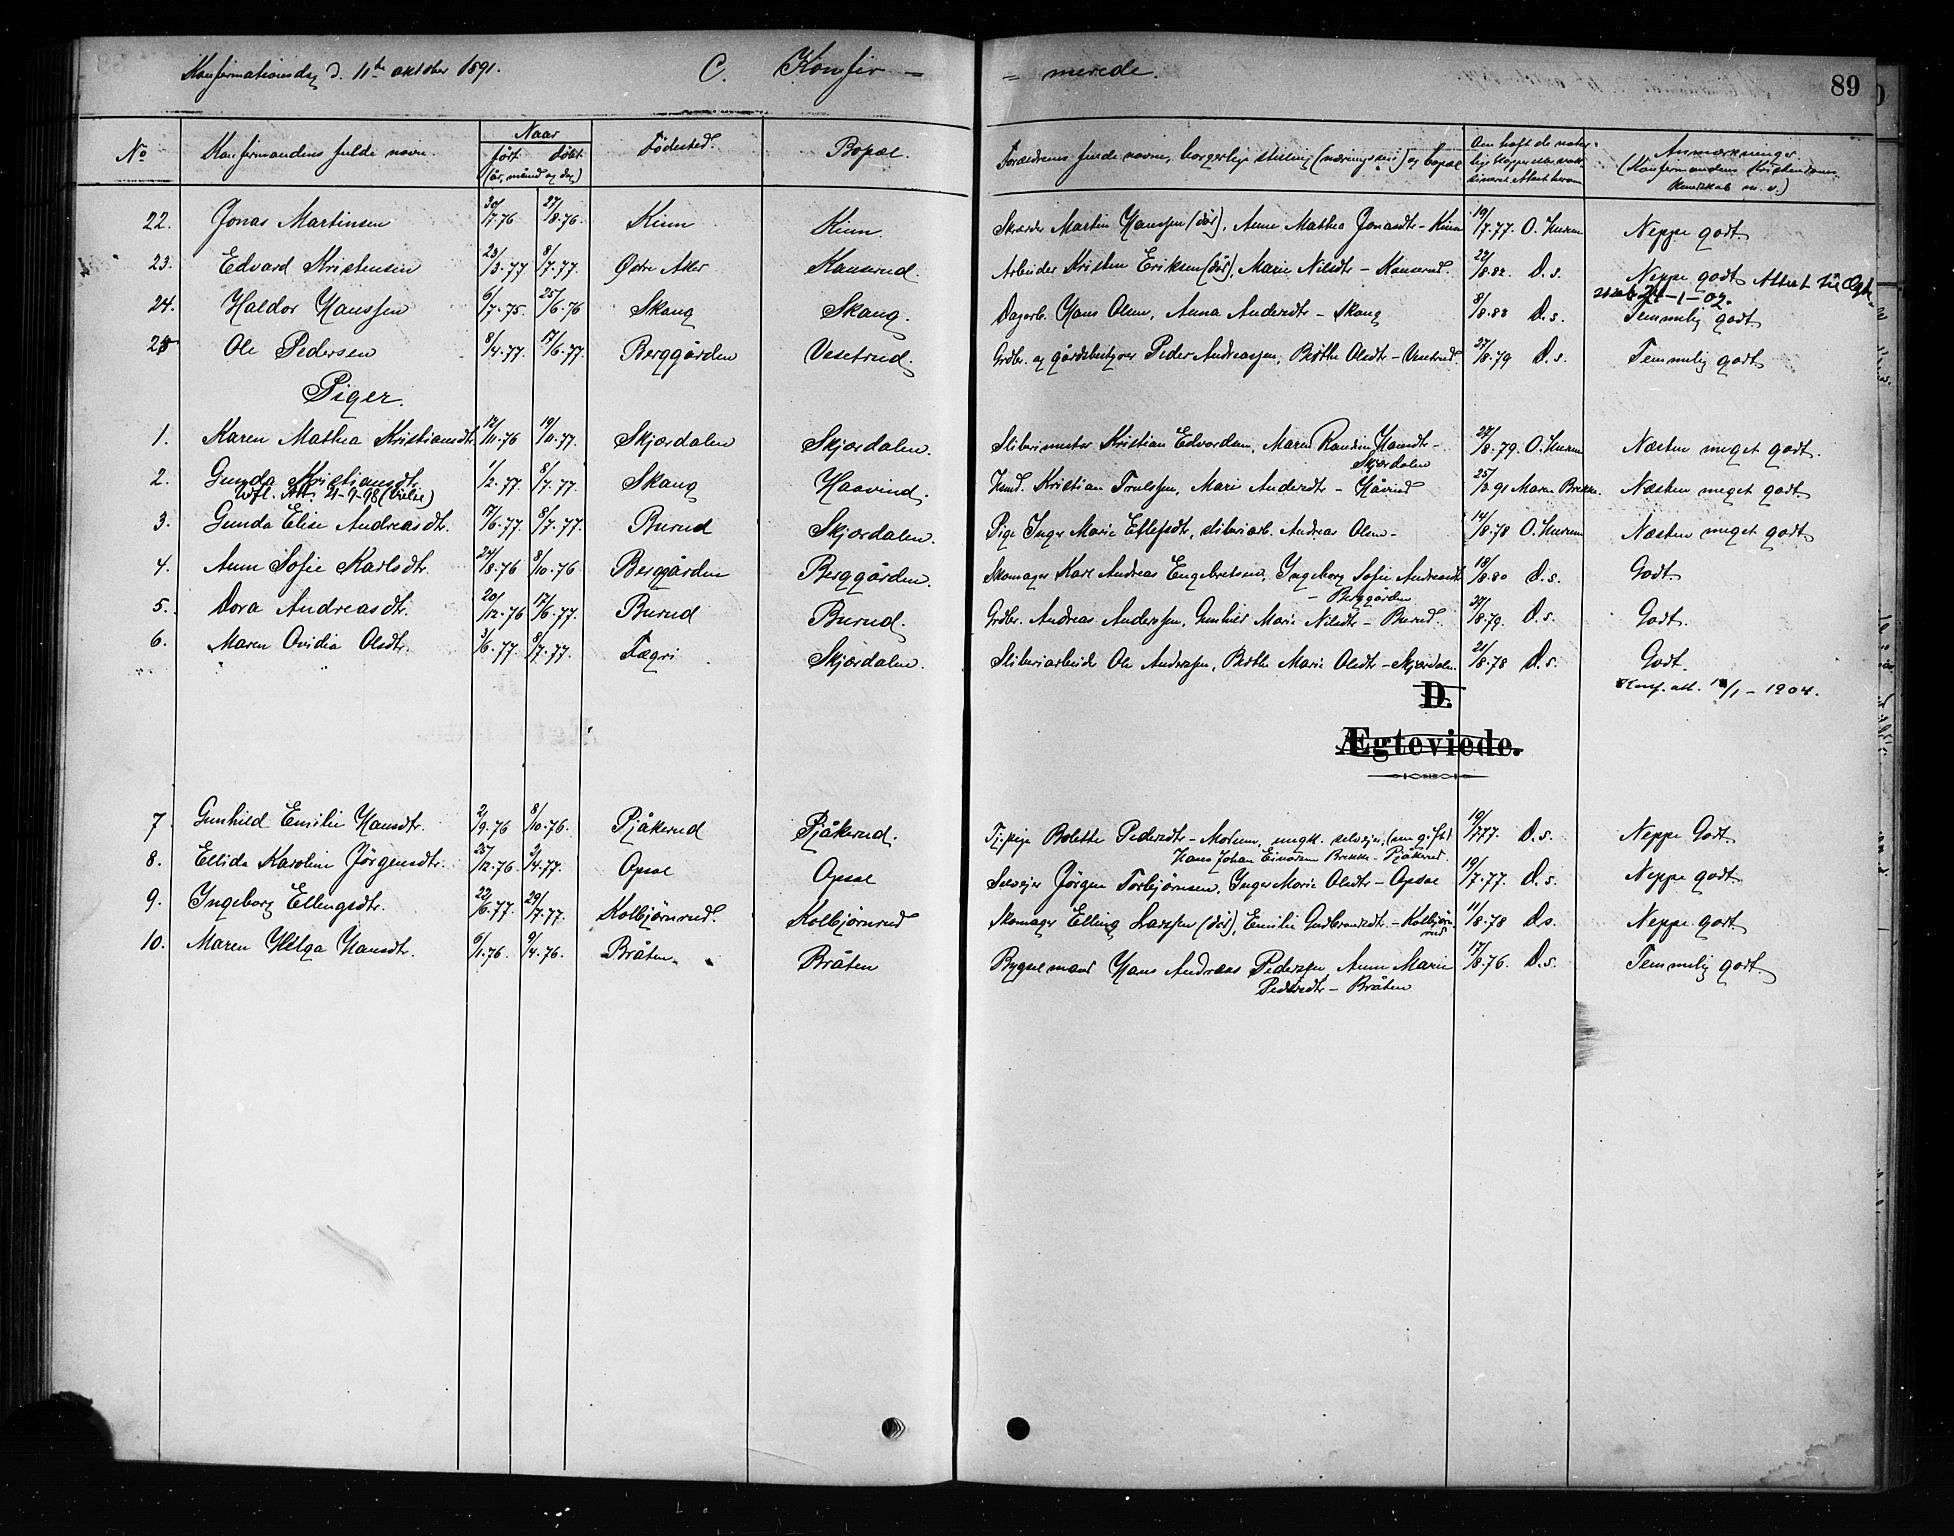 Konfirmationsdag d. 11te oktober 1891. C. Konfir = = merede. 89
No Konfirmandens fulde navn. Naar født døbt (år, måned og dag) Fødested. Bopæl. Forældrenes fulde navne, borgerlige stilling og bopæl Anmærkninger. (Konfirmandens Kristendomskundskab m. v.)
22. Jonas Martinsen 30/7.76 27/8.76 Kinn Kinn. Skræder Martin Hanssen (død), Anne Mathea Jonasdtr - Kinn 19/7.77. O. Hurum Neppe godt
23. Edvard Kristensen 23/3.77 8/7.77. Østre Aker Kanserud. Arbeider Kristen Eriksen (død) Marie Nilsdtr - Kanserud. 22/8.82. D. s. Neppe godt Attest til Ægte-
skab 21-1-02.
24. Haldor Hanssen 6/7.75. 25/6.76 Skaug Skaug. Dagarb. Hans Olsen, Anna Andersdtr - Skaug 8/8.83 D. s. Temmelig godt
25 Ole Pedersen 8/4.77. 17/6.77. Berggården Vesetrud. Grdbr. og gårdsbestyrer Peder Andreassen, Berthe Olsdtr - Vesetrud. 27/8.79 D. s. Temmelig godt
Piger.
1. Karen Mathea Kristiansdtr 12/11.76 19/11.77. Skjærdalen Skjærdalen. Sliberimester Kristian Edvardsen, Maren Randine Hansdtr - 22/8.79. O. Hurum Næsten meget godt.
Skjærdalen
2. Gunda Kristiansdtr. 1/2.77. 8/7.77. Skaug Haavind. Husmd. Kristian Trulssen, Mari Andersdtr - Håvind 25/3.91 Maren Brekke. Næsten meget godt
Utfl. Att. 21-9-98 (Vielse)
3. Gunda Elise Andreasdtr. 17/6.77. 8/7.77. Burud Skjærdalen. Pige Inger Marie Ellefsdtr, sliberiarb. Andreas Olsen - 14/8.78 O. Hurum Næsten meget godt
4. Anne Sofie Karlsdtr. 24/8.76 8/10.76 Berggården Berggården. Skomager Karl Andreas Engebretsen, Ingeborg Sofie Andreasdtr 18/8.80 D. s. Godt
- Berggården
5. Dora Andreasdtr. 20/12.76 17/6.77. Burud Burud. Grdbr. Andreas Anderssen, Gunhild Marie Nilsdtr - Burud. 29/8.79. D. s. Godt.
6. Maren Ovidia Olsdtr. 3/6.77. 8/7.77. Fægri Skjærdalen. Sliberiarbeider Ole Anderssen, Berthe Marie Olsdtr - Skjærdalen. 21/8.78 D. s. Godt.
Konf. att. /1-1904.
D.
Ægteviede.
7. Gunhild Emilie Hansdtr. 2/9.76 8/10.76. Pjåkerud Pjåkerud. Tj.pige Bolette Pedersdtr - Modum, ungk. selvejer, (nu gift) 19/7.77. D. s. Neppe Godt
Hans Johan Einarsen Brekke - Pjåkerud.
8. Ellida Karoline Jörgensdtr. 25/12.76 2/4.77. Opsal Opsal Selvejer Jörgen Torbjörnsen, Inger Marie Olsdtr - Opsal 19/7.77. D. s. Neppe godt
9. Ingeborg Ellingsdtr. 22/6.77. 29/7.77. Kolbjörnrud. Kolbjörnrud Skomager Elling Larssen (död), Emilie Gudbrandsdtr - Kolbjörn 11/8.78 D. s. Neppe godt
rud
10. Maren Helga Hansdtr. 6/1.76. 9/4.76. Bråten. Bråten Bygselmand Hans Andreas Pederssen, Anne Marie 17/8.76. D. s. Temmelig godt
Pedersdtr - Bråten